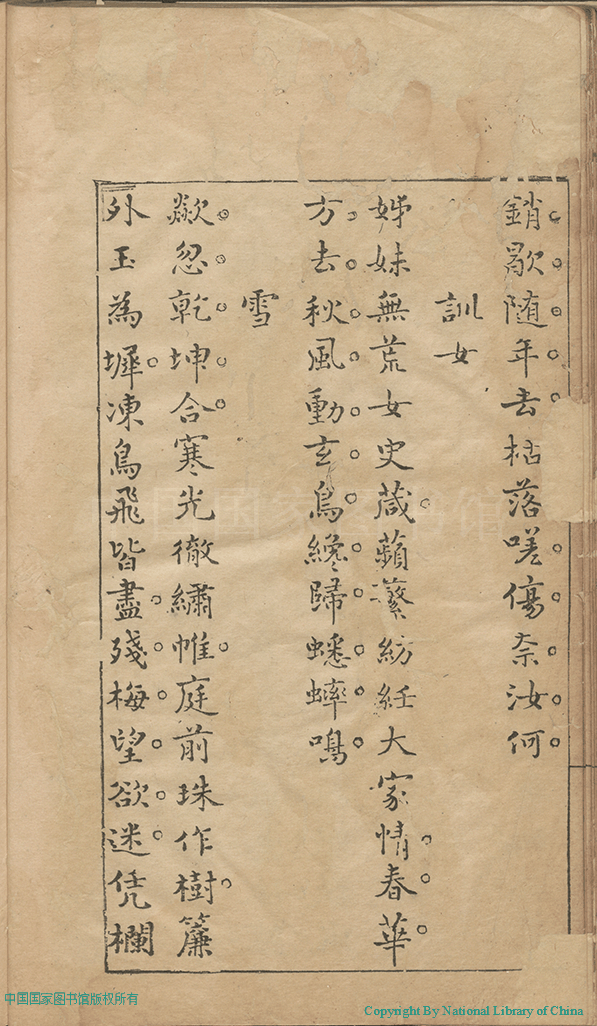 銷歇随年去枯落嗟傷奈汝何
訓女
姊妹無荒女史葴蘋蘩紡絍大家情春華
方去秋風動玄鳥纔歸蟋蟀鳴
雪
歘忽乾坤合寒光徹繡帷庭前珠作樹簾
外玉為墀凍鳥飛皆盡殘梅望欲迷凭欄
中国国家图书馆版权所有
Copyright By National Library of China